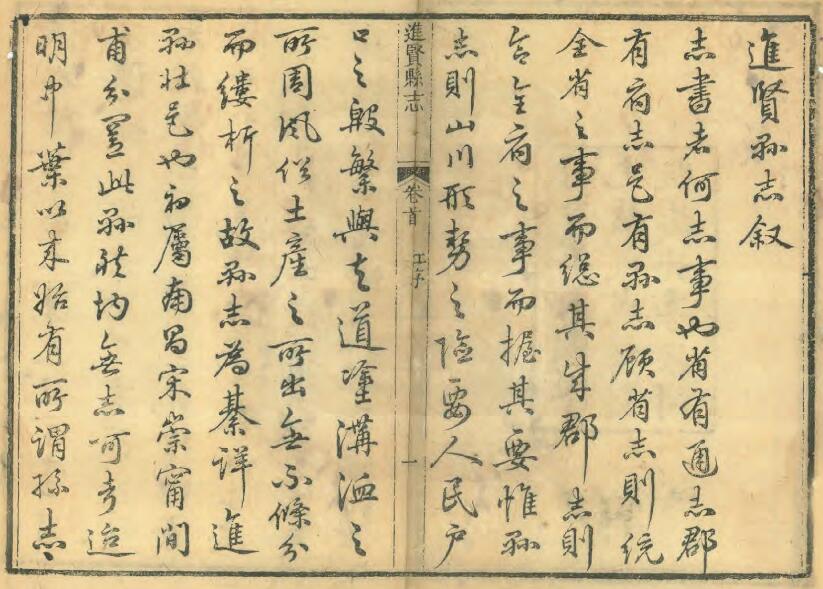 進賢縣志叙
志書者何志事也省有通志郡
有府志邑有縣志顧省志則統
全省之事而總其成郡志則
合全府之事而握其要惟縣
志則山川形勢之險要人民户
進賢縣志 卷首 序 一
口之殷繁與夫道塗溝洫之
所周風俗土產之所出無不條分
而縷析之故縣志為綦詳進
縣壯邑也初屬南昌宋崇甯間
甫分置此縣然均無志可考迨
明中葉以來始有所謂縣志